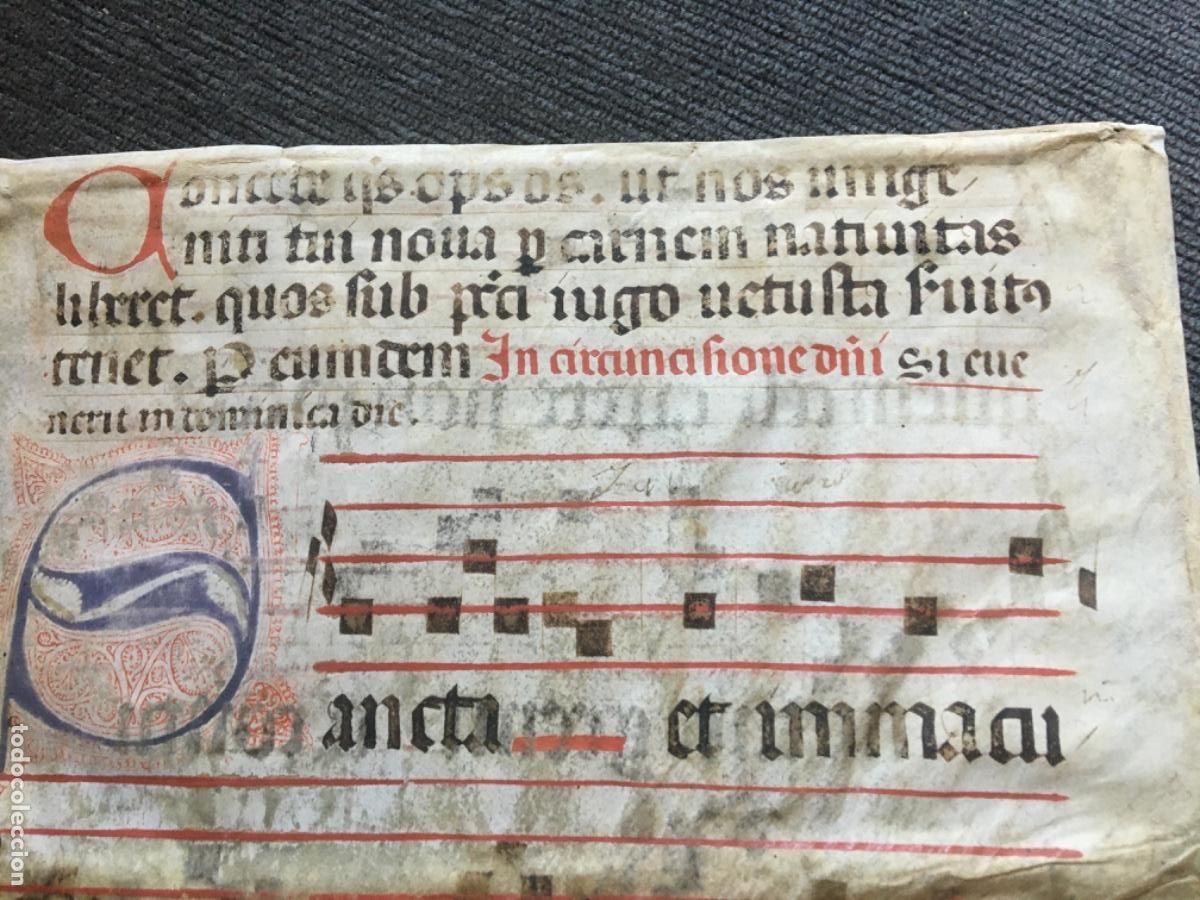 Concede qs ops ds. ut nos unige
niti tui noua p carnem natiuitas
liberet. quos sub pcti iugo uetusta seruitus
tenet. P eumdem In circuncisione dni Si eue
nerit in dominica die.
Sancta et immacu
todocoleccion